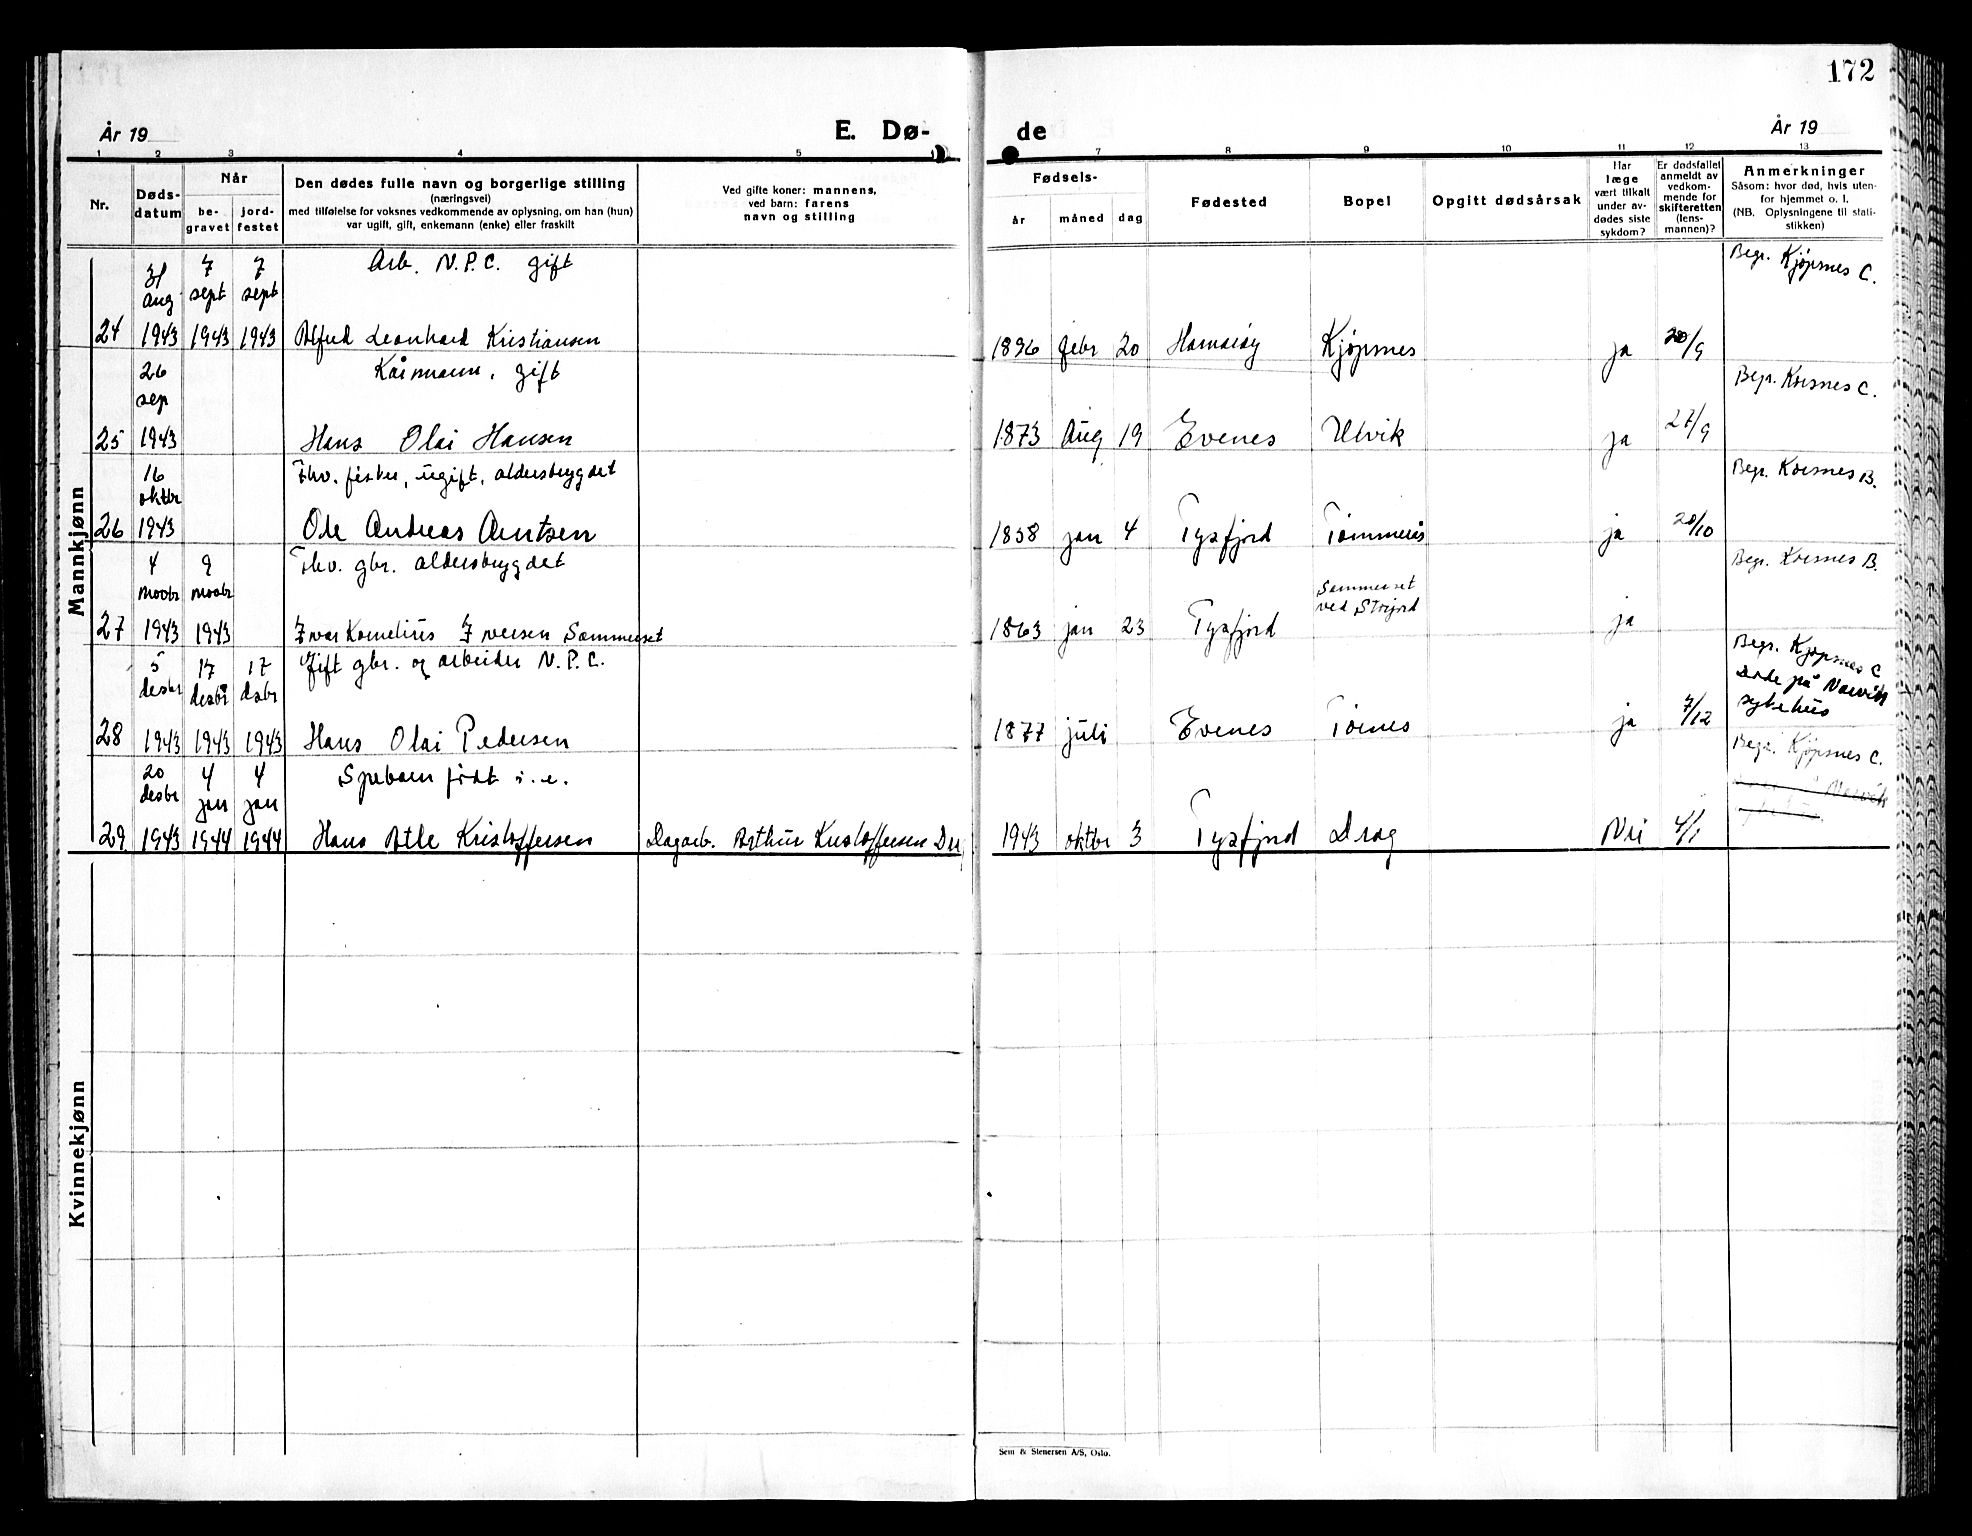 172
År 19
E. Dø-
de
År 19
1 2 3 4 5
7 8 9 10 11 12 13
Nr.
Døds-
datum
Når
be-
gravet
jord-
festet
Den dødes fulle navn og borgerlige stilling
(næringsvei)
med tilføielse for voksnes vedkommende av oplysning, om han (hun)
var ugift, gift, enkemann (enke) eller fraskilt
Ved gifte koner: mannens,
ved barn: farens
navn og stilling
Fødsels-
år måned dag
Fødested
Bopel
Opgitt dødsårsak
Har
læge
vært tilkalt
under av-
dødes siste
sykdom?
Er dødsfallet
anmeldt av
vedkom-
mende for
skifteretten
(lens-
mannen)?
Anmerkninger
Såsom: hvor død, hvis uten-
for hjemmet o. l.
(NB. Oplysningene til stati-
stikken)
Mannkjønn
31 7 7 Arb. N.P.C. gift Begr. Kjøpsnes C.
aug sept sept
24 1943 1943 1943 Alfred Leonhard Kristiansen 1896 febr 20 Hamarøy Kjøpsnes ja 20/9
26 Kårmann, gift Begr. Korsnes C.
sep
25 1943 Hans Olai Hansen 1873 Aug 19 Evenes Ulvik ja 27/9
16 Fhv. fisker, ugift, alderstrygdet Begr. Korsnes B.
oktbr
26 1943 Ole Andreas Arntsen 1858 jan 4 Tysfjord Tømmerås ja 20/10
4 9 Fhv. gbr. alderstrygdet Begr. Korsnes B.
novbr novbr Sommerset
ved Storjord
27 1943 1943 Ivar Kornelius Iversen Sommerset 1863 jan 23 Tysfjord ja
5 17 17 Gift gbr. og arbeider N.P.C. Begr. Kjøpsnes C
desbr desbr desbr Døde på Narvik
sykehus
28 1943 1943 1943 Hans Olai Pedersen 1877 juli Evenes Tornes ja 7/12
20 4 4 Spebarn født i. e. Begr. Kjøpsnes C.
desbr jan jan Narvik
29 1943 1944 1944 Hans Atle Kristoffersen Dagarb. Arthur Kristoffersen 1943 oktbr 3 Tysfjord Drag Nei 4/1
Kvinnekjønn
Sem & Stenersen A/S, Oslo.